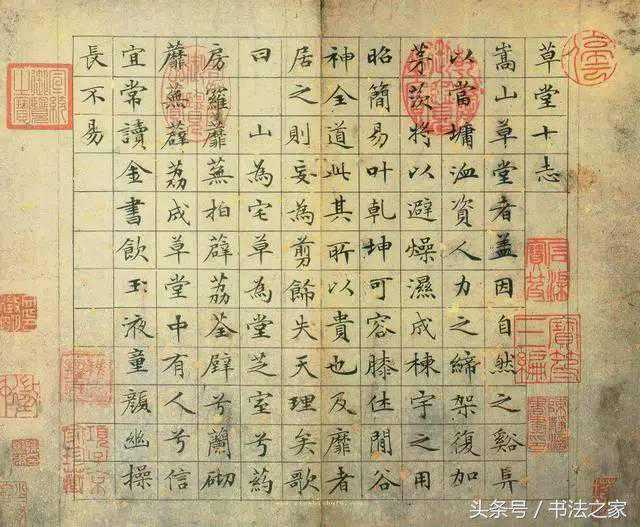 草堂十志
嵩山草堂者盖因自然之谿阜
以當墉洫資人力之締架復加
茅茨將以避燥濕成棟宇之用
昭簡易叶乾坤可容膝休閒谷
神全道此其所以貴也及靡者
居之則妄為剪餙失天理矣歌
曰 山為宅草為堂芝室兮葯
房羅蘼蕪拍薜荔荃壁兮蘭砌
蘼蕪薜荔成草堂中有人兮信
宜常讀金書飲玉液童顏幽操
長不易
头条号 / 书法之家